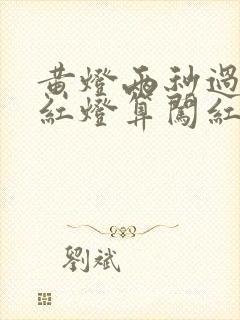 黃燈兩秒過
紅燈算闖紅
劉斌